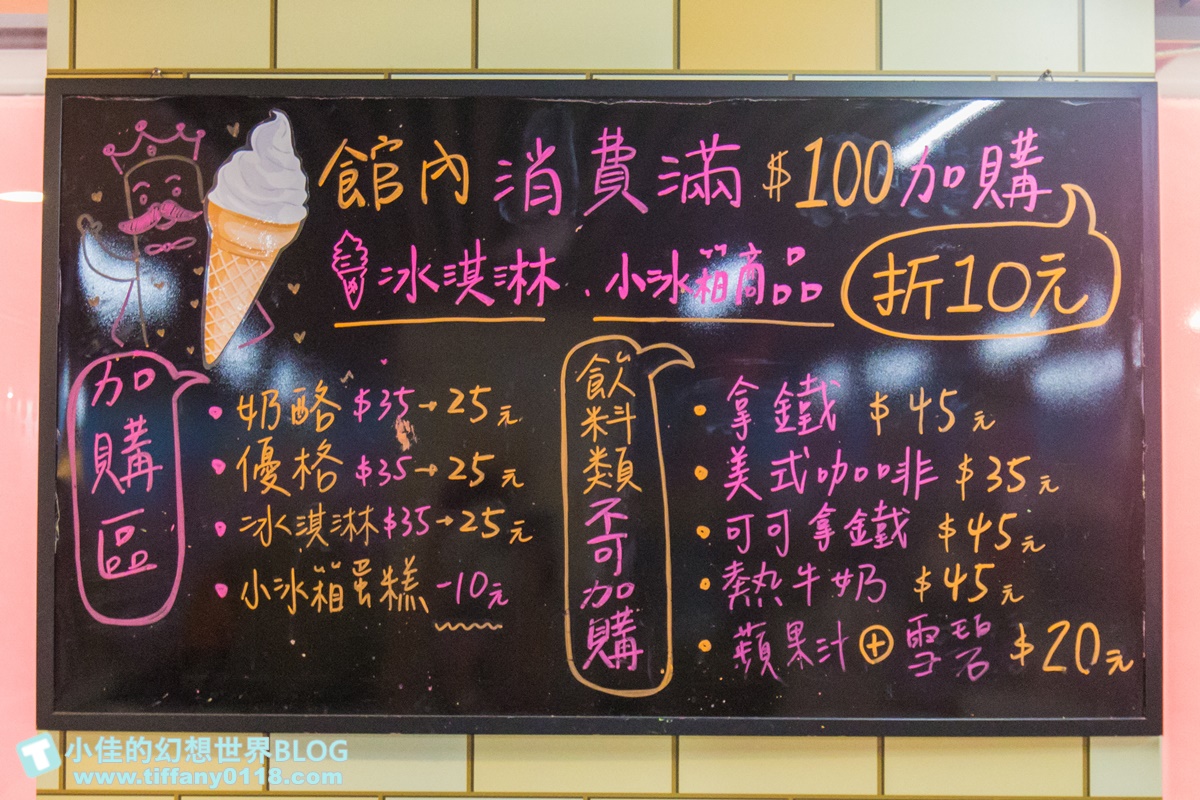 館內消費滿$100加購
冰淇淋、小冰箱商品
折10元
加購區
奶酪 $35→25元
優格 $35→25元
冰淇淋$35→25元
小冰箱蛋糕-10元
飲料類不可加購
拿鐵 $45元
美式咖啡 $35元
可可拿鐵 $45元
熱牛奶 $45元
蘋果汁+雪碧 $20元
小佳的幻想世界BLOG
www.tiffany0118.com